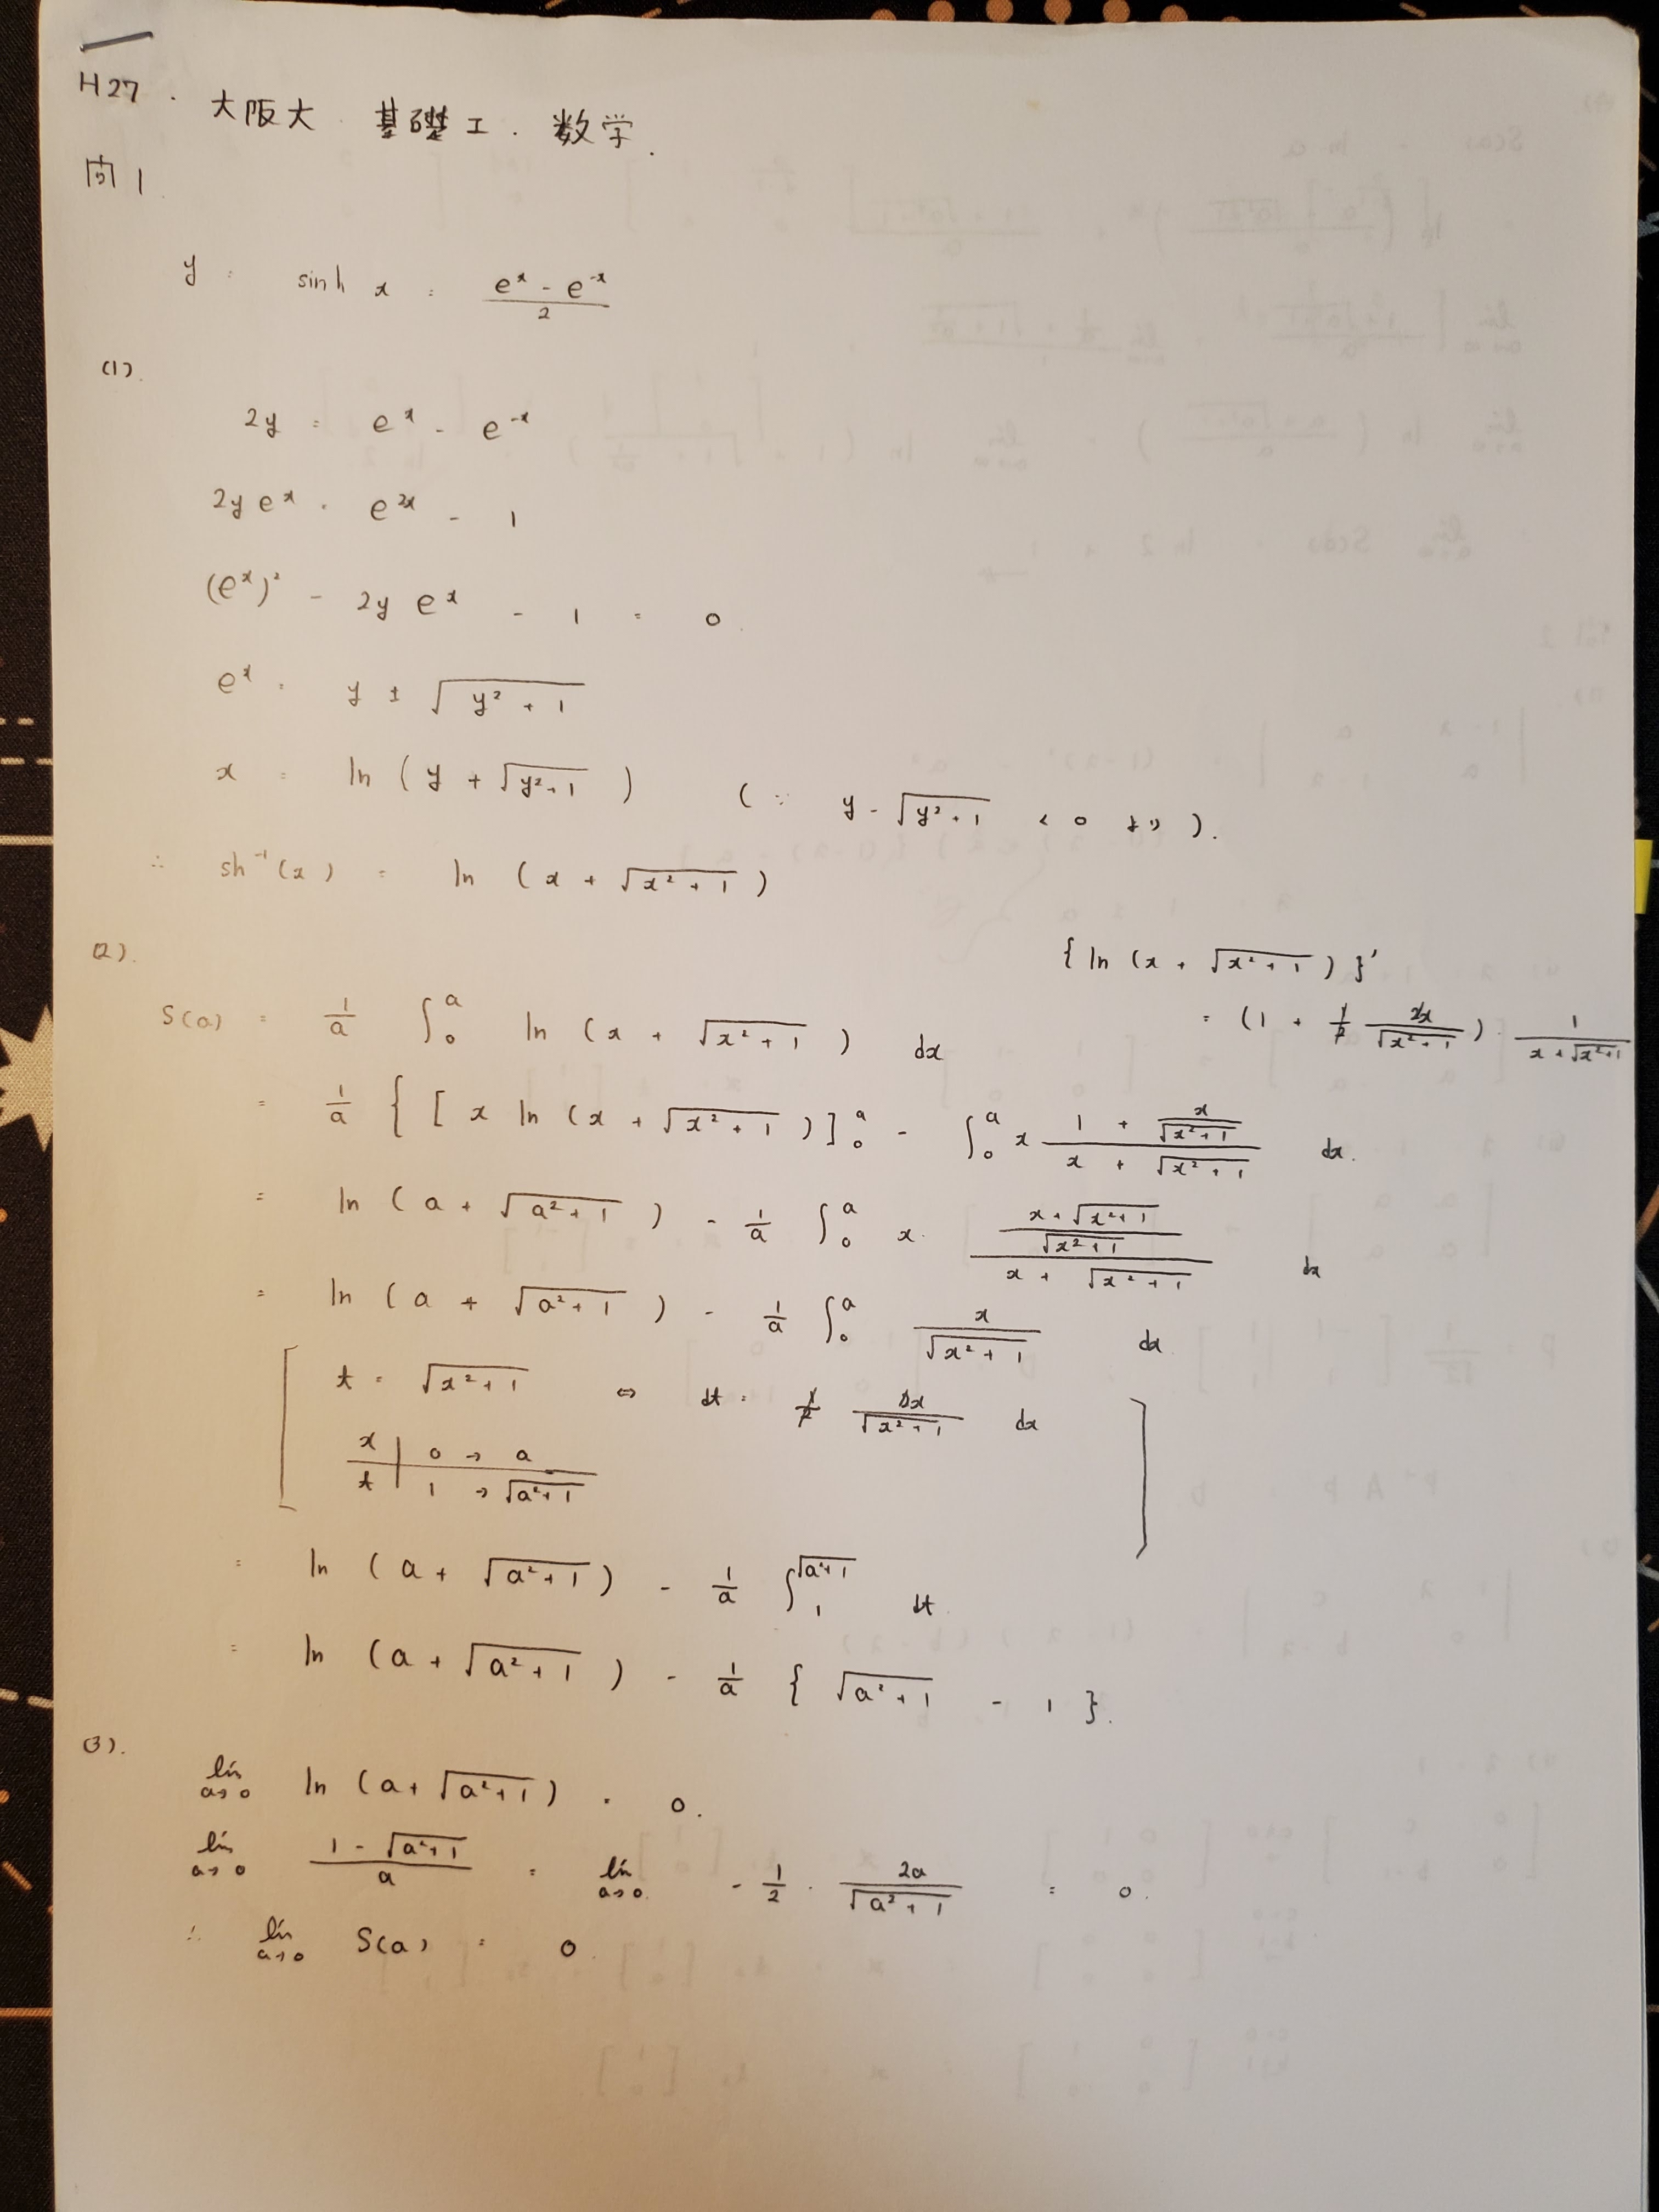 H27. 大阪大 基礎工. 数学.
問1
y = sinh x = (e^x - e^-x)/2
(1).
2y = e^x - e^-x
2y e^x = e^2x - 1
(e^x)² - 2y e^x - 1 = 0.
e^x = y ± √(y² + 1)
x = ln (y + √(y²+1)) (∵ y - √(y²+1) < 0 より).
∴ sh⁻¹(x) = ln (x + √(x² + 1))
(2).
{ln (x + √(x² + 1))}'
= (1 + 1/2 2x/√(x²+1)) · 1/(x + √(x²+1))
S(a) = 1/a ∫₀^a ln (x + √(x² + 1)) dx
= 1/a { [x ln (x + √(x² + 1))]₀^a - ∫₀^a x (1 + x/√(x²+1))/(x + √(x²+1)) dx.
= ln (a + √(a² + 1)) - 1/a ∫₀^a x · ((x + √(x²+1))/√(x²+1))/(x + √(x²+1)) dx
= ln (a + √(a² + 1)) - 1/a ∫₀^a x/√(x² + 1) dx
[ t = √(x² + 1) ⇔ dt = 1/2 2x/√(x²+1) dx ]
x | 0 → a
t | 1 → √(a²+1)
= ln (a + √(a² + 1)) - 1/a ∫₁^√(a²+1) dt
= ln (a + √(a² + 1)) - 1/a { √(a² + 1) - 1 }.
(3).
lim a→0 ln (a + √(a² + 1)) = 0.
lim a→0 (1 - √(a²+1))/a = lim a→0. - 1/2 · 2a/√(a² + 1) = 0.
∴ lim a→0 S(a) = 0.